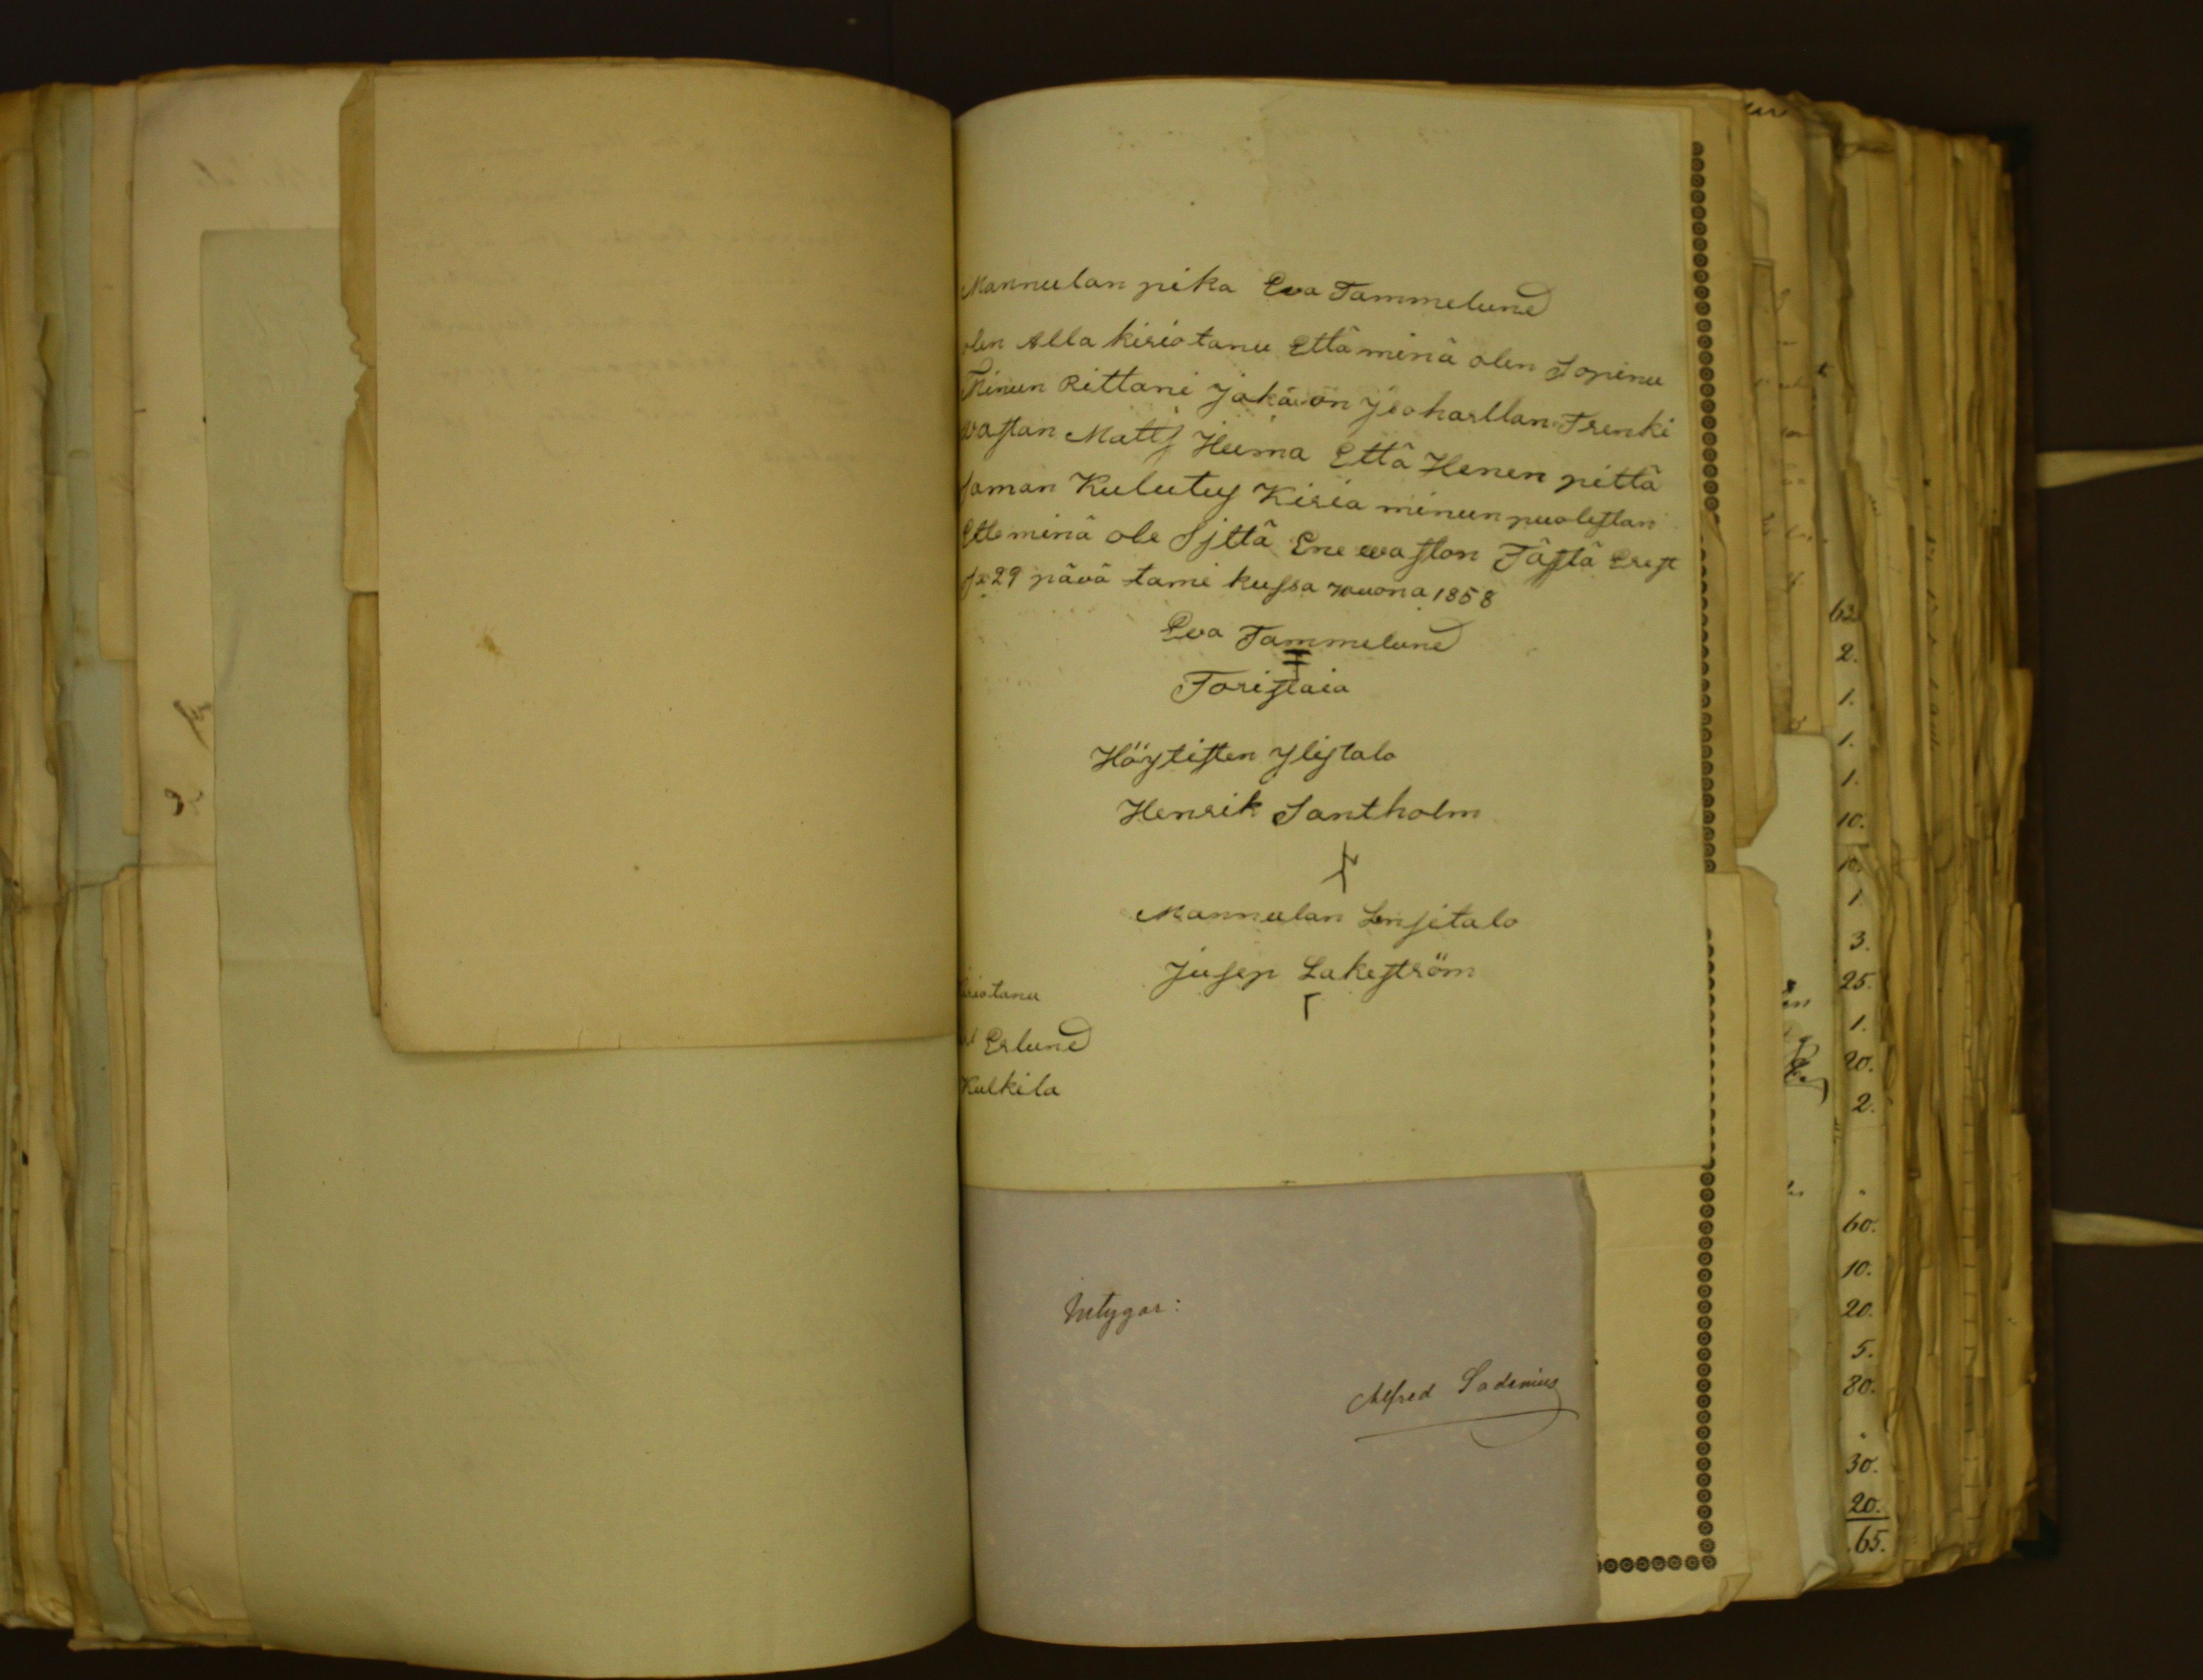 Mannulan pika Eva Tammelund
olen Alla kiriotanu Että minä olen Sopinu
Minun Rittani Jaka on Jsohasllan Trenki
wastan Matts Heima Että Henen pittä
saman Kulutus Kiria minun puolestan
Ette minä ole Sjttä Ene wastan Tästä Erest
29 pävä tami kussa wuona 1858
Eva Tammelund
Toristaia
Höystisten Ylistalo
Henrik Santholm
Mannulan Ensitalo
Jusep Lakeström
kiriotanu
Erlund
Kulkila
Intygar:
Alfred Sadenius
62
2.
1.
1.
1.
10.
10.
1.
3.
25.
1.
20.
2.
60.
10.
20.
5.
80.
30.
20.
65.